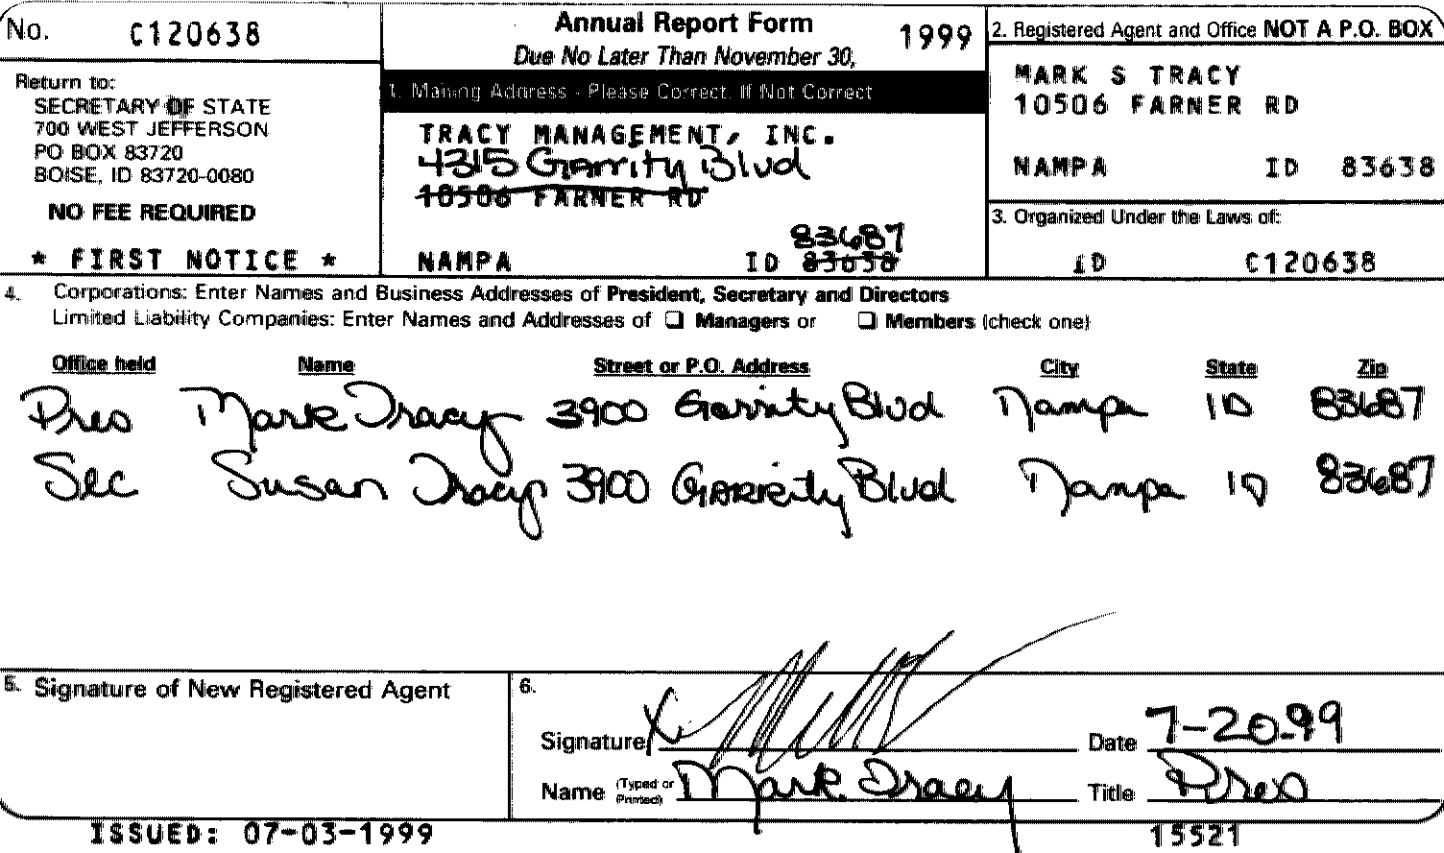 No. C120638
Return to:
SECRETARY OF STATE
700 WEST JEFFERSON
PO BOX 83720
BOISE, ID 83720-0080
NO FEE REQUIRED
* FIRST NOTICE *
Annual Report Form 1999
Due No Later Than November 30,
1. Mailing Address - Please Correct, If Not Correct
TRACY MANAGEMENT, INC.
4315 Garrity Blvd
10506 FARNER RD
83687
NAMPA ID 83638
2. Registered Agent and Office NOT A P.O. BOX
MARK S TRACY
10506 FARNER RD
NAMPA ID 83638
3. Organized Under the Laws of:
ID C120638
4. Corporations: Enter Names and Business Addresses of President, Secretary and Directors
Limited Liability Companies: Enter Names and Addresses of ❑ Managers or ❑ Members (check one)
Office held Name Street or P.O. Address City State Zip
Pres Mark Tracy 3900 Garrity Blvd Nampa ID 83687
Sec Susan Tracy 3900 Garrity Blvd Nampa ID 83687
5. Signature of New Registered Agent
6.
Signature X Date 7-20-99
Name (Typed or Printed) Mark Tracy Title Pres
ISSUED: 07-03-1999 15521